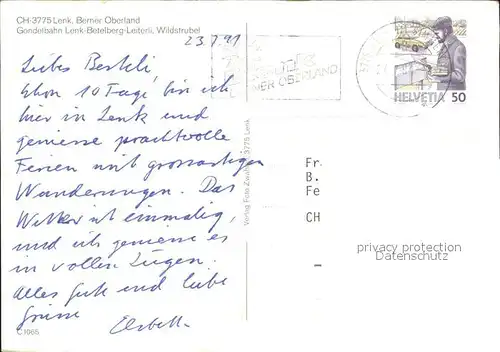 CH-3775 Lenk, Berner Oberland
Gondelbahn Lenk-Betelberg-Leiterli, Wildstrubel
23.7.91
BERNER OBERLAND
HELVETIA 50
Liebes Berteli,
Schon 10 Tage bin ich
hier in Lenk und
geniesse prachtvolle
Ferien mit grossartigen
Wanderungen. Das
Wetter ist einmalig,
und ich geniesse es
in vollen Zügen.
Alles Gute und liebe
Grüsse
Elsbeth.
Verlag Foto 3775 Lenk
Fr
B.
Fe
CH
privacy protection
Datenschutz
C1065